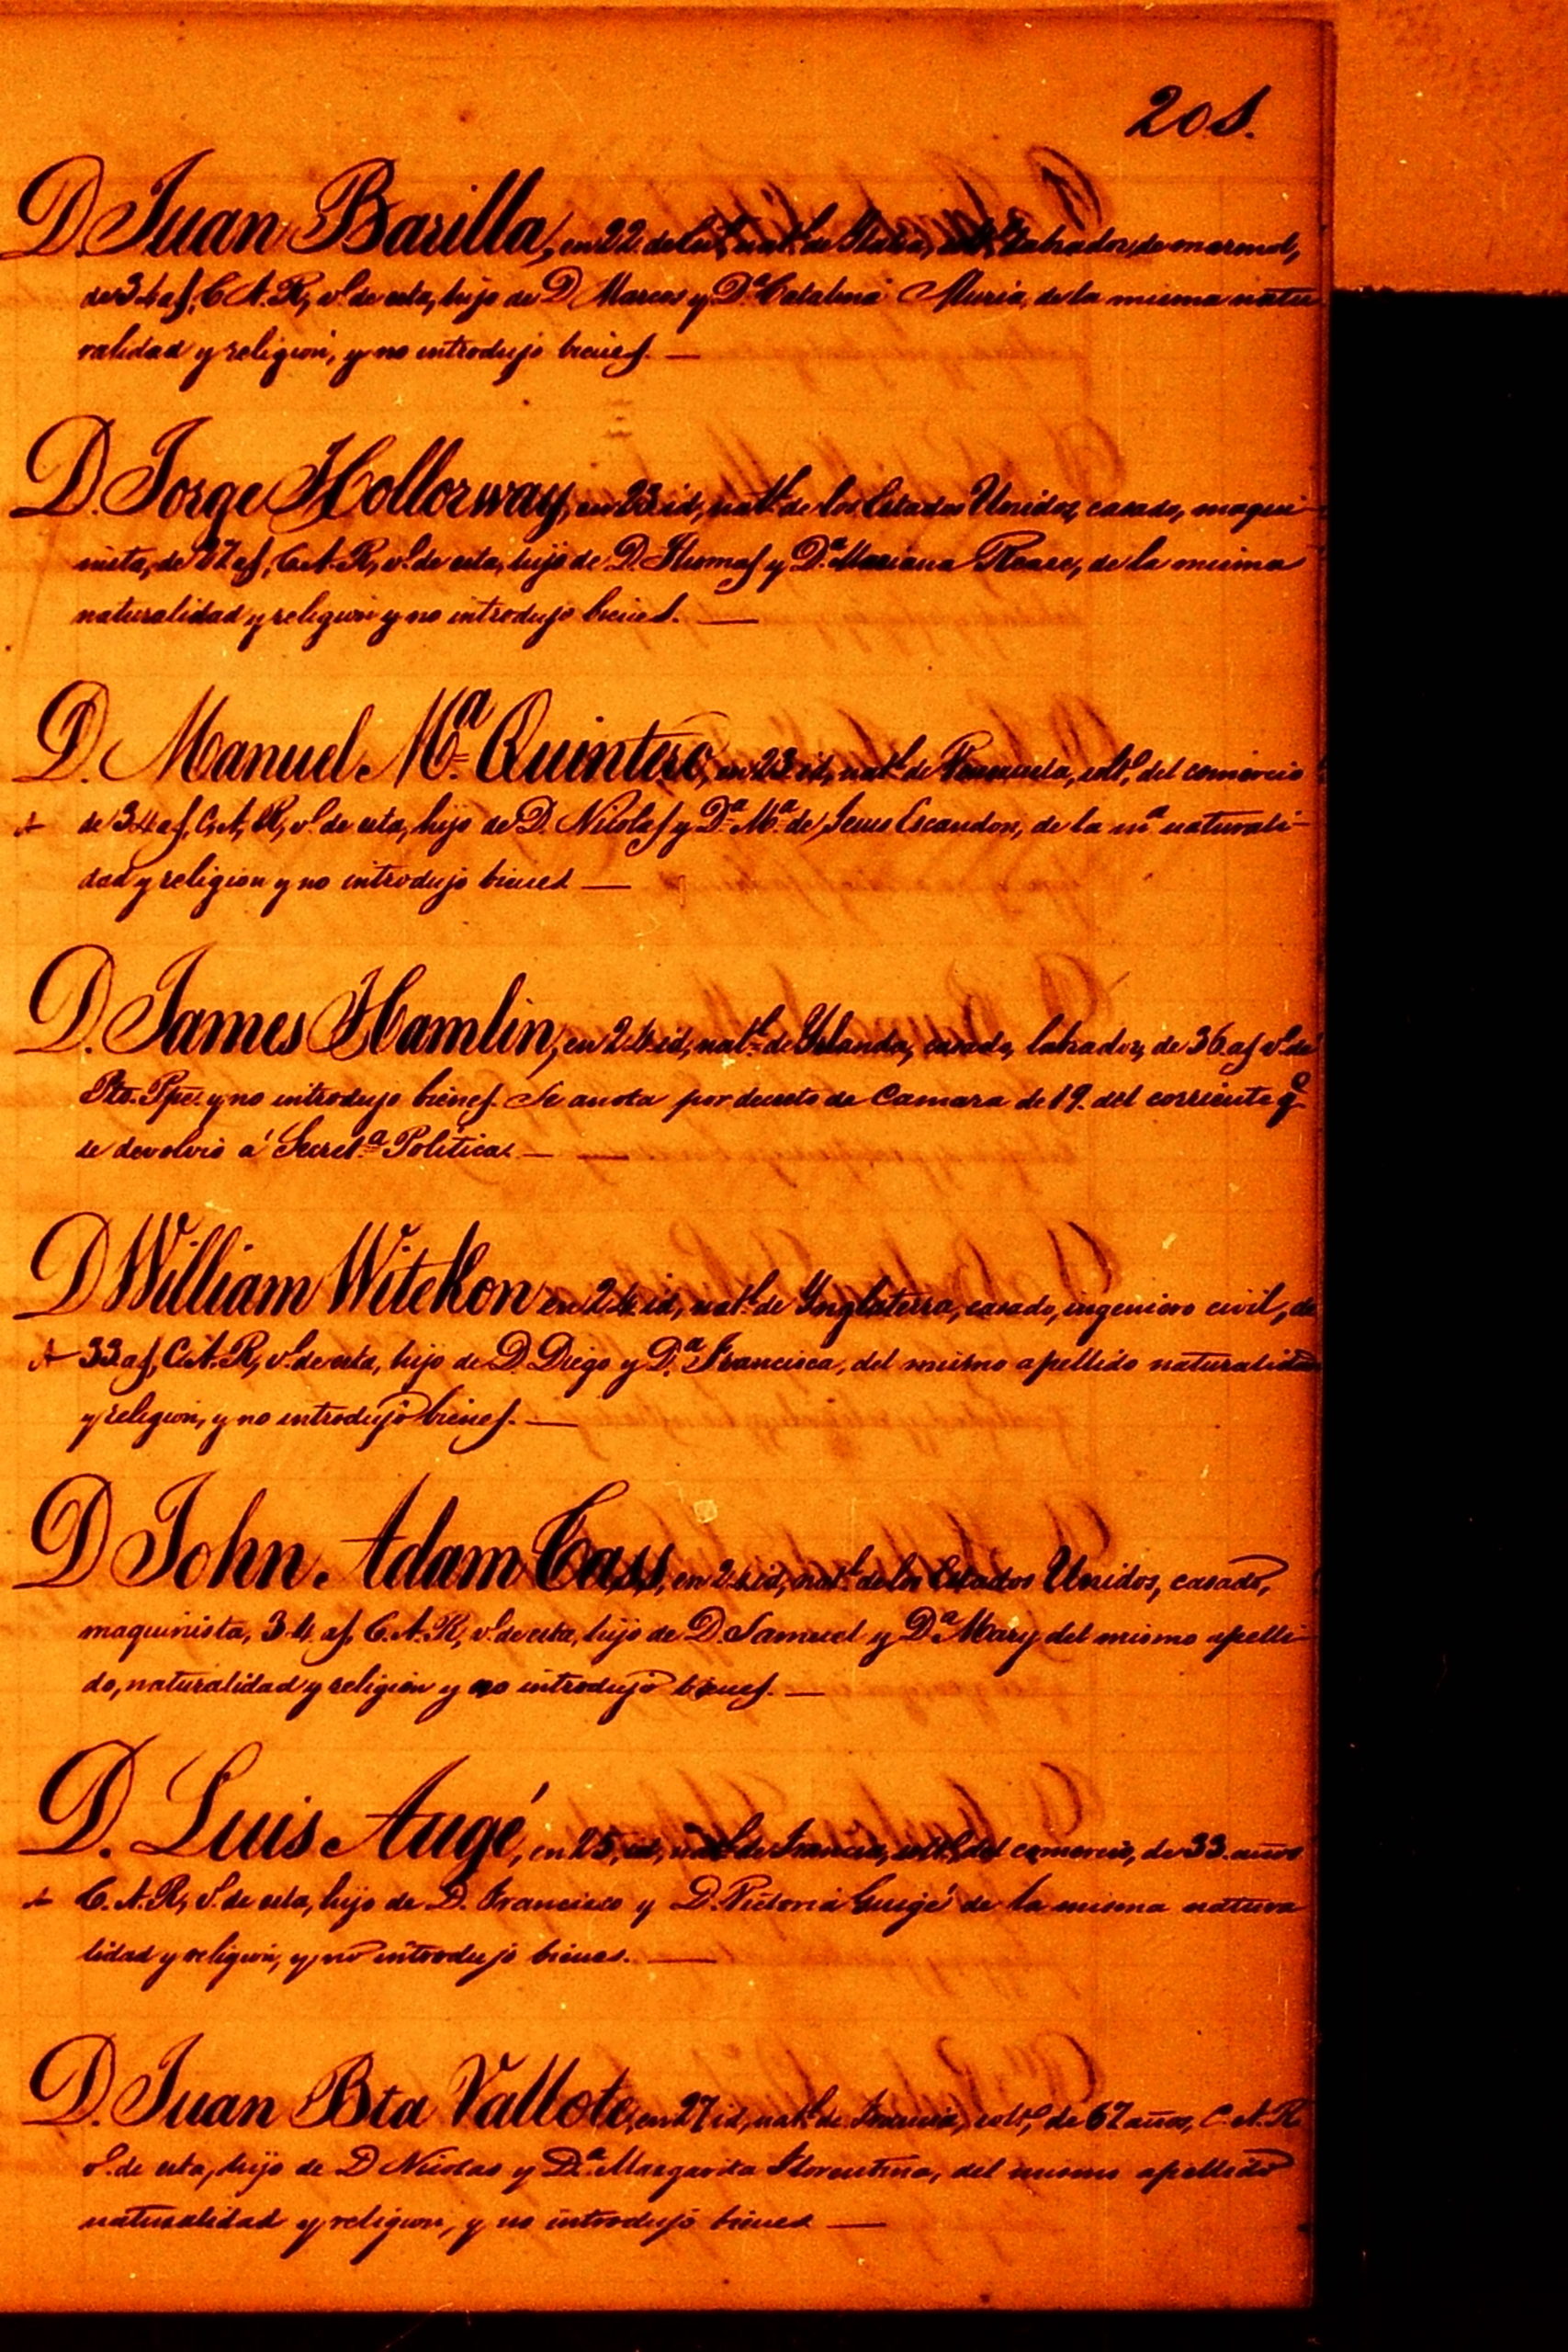 201.
D. Juan Barilla, en 22 de id, nat.l de Italia, labrador de marmol,
de 34 a.s, C. A. R, v.o de esta, hijo de D Marcos y D.a Catalina Muria, de la misma natu
ralidad y religion, y no introdujo bienes. —
D. Jorge Hollorway, en 23 id, nat.l de los Estados Unidos, casado, maqui-
nista, de 27 a.s, C. A. R, v.o de esta, hijo de D. Thomas y D.a Mariana Rease, de la misma
naturalidad y religion y no introdujo bienes. —
D. Manuel M.a Quintero, en 23 id, nat.l de Venezuela, solt.o, del comercio
de 34 a.s, C, A, R, v.o de esta, hijo de D. Nicolas y D.a M.a de Jesus Escandon, de la m.a naturali-
dad y religion y no introdujo bienes —
D. James Hamlin, en 24 id, nat.l de Yrlanda, casado, labrador, de 36 a.s v.o de
Pto. Ppe. y no introdujo bienes. Se anota por decreto de Camara de 19. del corriente q.e
se devolvio á Secret.a Politica. — —
D William Witekon en 24 id, nat.l de Ynglaterra, casado, ingeniero civil, de
33 a.s, C. A. R, v.o de esta, hijo de D. Diego y D.a Francisca, del mismo apellido naturalidad
y religion, y no introdujo bienes. —
D John Adam Cass, en 24 id, nat.l de los Estados Unidos, casado,
maquinista, 34 a.s, C. A. R, v.o de esta, hijo de D. Samuel y D.a Mary del mismo apelli-
do, naturalidad y religion y no introdujo bienes. —
D. Luis Augé, en 25, id, nat.l de Francia, solt.o, del comercio, de 33 años
C. A. R, v.o de esta, hijo de D. Francisco y D. Victoria Guigé de la misma natura
lidad y religion, y no introdujo bienes. —
D. Juan Bta Vallote, en 27 id, nat.l de Francia, solt.o, de 67 años, C. A. R.
v.o de esta, hijo de D Nicolas y D.a Margarita Florentina, del mismo apellido
naturalidad y religion, y no introdujo bienes —